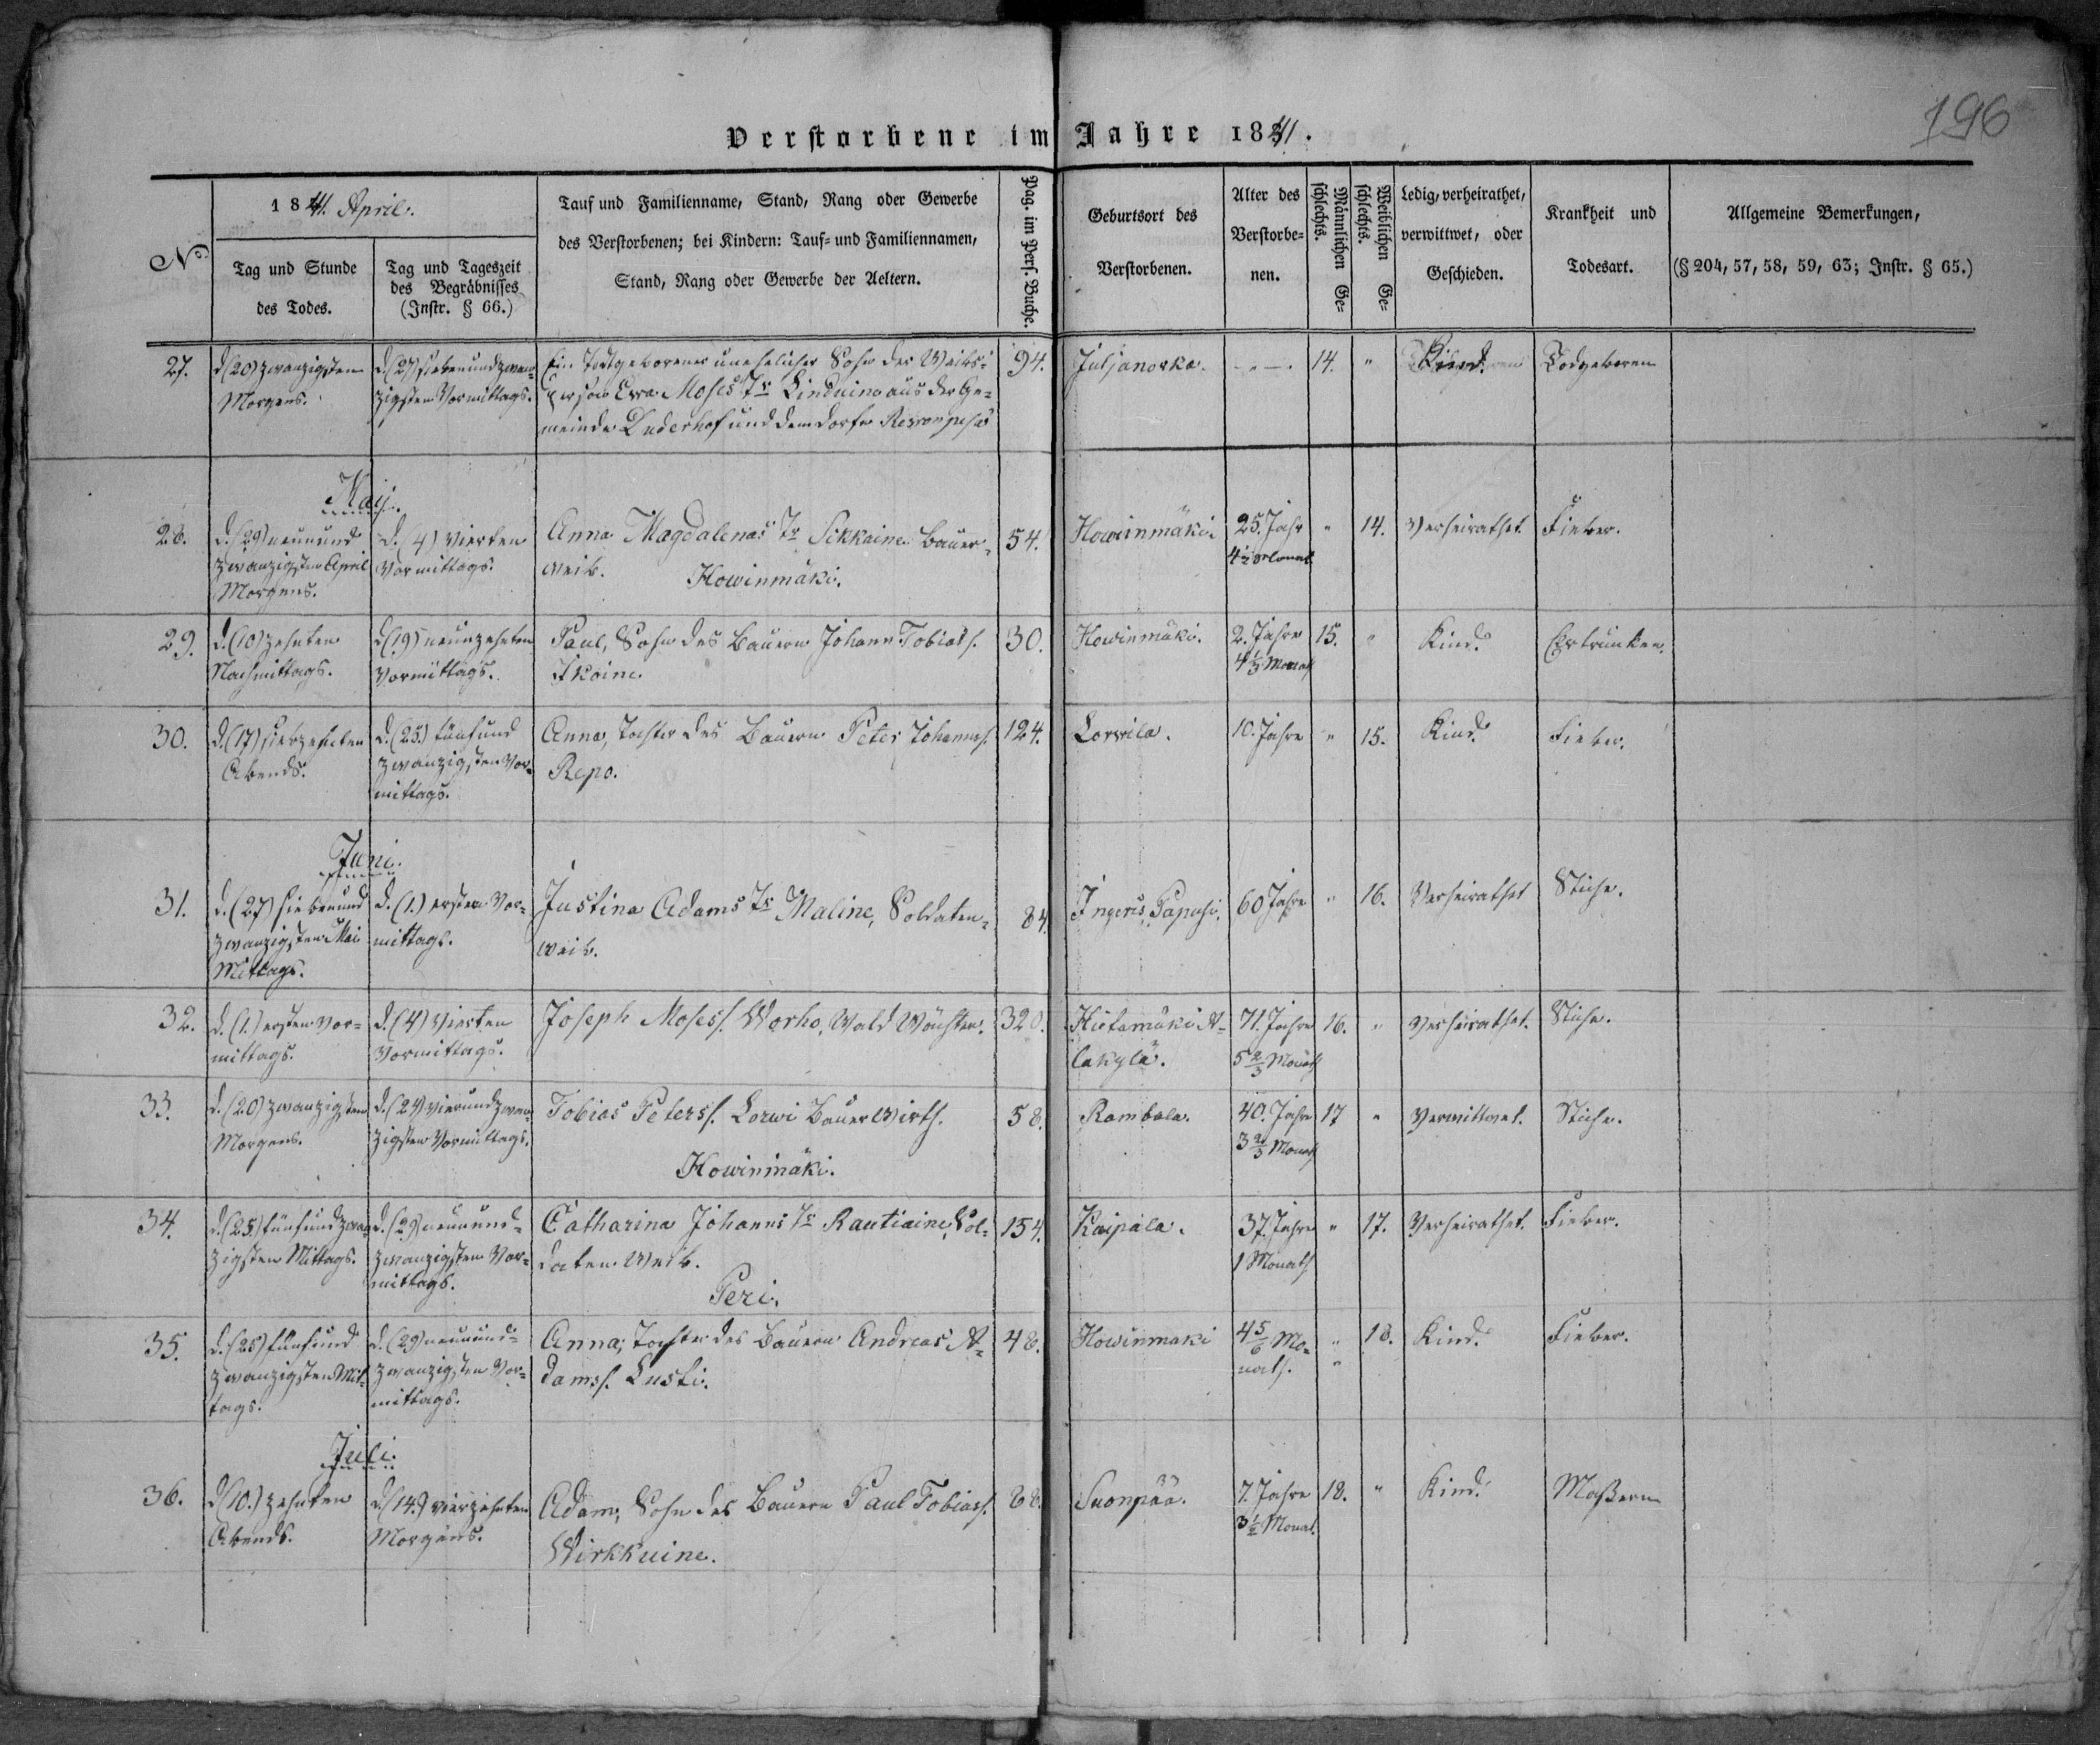 196
Verstorbene im Jahre 1841.
No
1841. April.
Tag und Stunde
des Todes.
Tag und Tageszeit
des Begräbnisses
(Instr. § 66.)
Tauf und Familienname, Stand, Rang oder Gewerbe
des Verstorbenen; bei Kindern: Tauf- und Familiennamen,
Stand, Rang oder Gewerbe der Aeltern.
Pag. im Pers. Buche.
Geburtsort des
Verstorbenen.
Alter des
Verstorbe-
nen.
Männlichen Ge-
schlechts.
Weiblichen Ge-
schlechts.
Ledig, verheirathet,
verwittwet, oder
Geschieden.
Krankheit und
Todesart.
Allgemeine Bemerkungen,
(§ 204, 57, 58, 59, 63; Instr. § 65.)
27.
d (20) zwanzigsten
Morgens.
d (27) siebenundzwan-
zigsten Vormittags.
Ein todtgeborener unehelicher Sohn der Weibs-
person Ewa Moses Tr Linduino aus der Ge-
meinde Duderhof und dem Dorfe
94.
Juljanorka.
14.
"
Kind.
Todgeboren
Maij.
28.
d. (29) neunund
zwanzigsten April
Morgens.
d. (4) vierten
Vormittags.
Anna Magdalenas Tr Sikkaine Bauer-
weib. Howinmäki.
54.
Howinmäki
25. Jahr
4½ Monat
"
14.
Verheirathet
Fieber.
29.
d. (10) zehnten
Nachmittags.
d (19) neunzehnten
Vormittags.
Paul, Sohn des Bauern Johann Tobiass.
Ikoine.
30.
Howinmäki.
2. Jahre
4⅓ Monat
15.
"
Kind.
Ertrunken.
30.
d. (17) siebzehnten
Abends.
d. (25.) fünfund
zwanzigsten Vor-
mittags.
Anna, Tochter des Bauern Peter Johanns.
Repo.
124.
Lorwila.
10. Jahre
"
15.
Kind.
Fieber.
Juni.
31.
d. (27) siebenund
zwanzigsten Mai
Mittags.
d. (1.) ersten Vor-
mittags.
Justina Adams Tr Maline, Soldaten-
weib.
84.
Ingeris, Papusi.
60 Jahre
"
16.
Verheirathet
Stiche.
32.
d. (1.) ersten Vor-
mittags.
d. (4) vierten
Vormittags.
Joseph Moses s. Worho, Wald Wächter.
320.
Hietamäki A-
lakylä.
71. Jahre
5⅔ Monat
16.
"
Verheirathet.
Stiche.
33.
d. (20) zwanzigsten
Morgens.
d. (24) vierundzwan-
zigsten Vormittags.
Tobias Peters s. Lorwi Bauer Wirth.
Howinmäki.
58.
Rambala.
40. Jahre
3⅔ Monat
17
"
Verwittwet.
Stiche.
34.
d. (25) fünfundzwan-
zigsten Mittags.
d. (29) neunund-
zwanzigsten Vor-
mittags.
Catharina Johanns Tr Rautiaine, Sol-
daten Weib.
Peri.
154.
Kaipala.
37. Jahre
1 Monath
"
17.
Verheirathet.
Fieber.
35.
d. (25) fünfund
zwanzigsten Mit-
tags.
d. (29) neunund-
zwanzigsten Vor-
mittags.
Anna, Tochter des Bauern Andreas A-
dams s. Lusti.
48.
Howinmäki
4⅚ Mo-
nath.
"
18.
Kind.
Fieber.
Juli.
36.
d (10.) zehnten
Abends.
d. (14.) vierzehnten
Morgens.
Adam, Sohn des Bauern Paul Tobiass.
Wirkkuine.
88.
Suonpää.
7. Jahre
3½ Monat.
18.
"
Kind.
Maßern